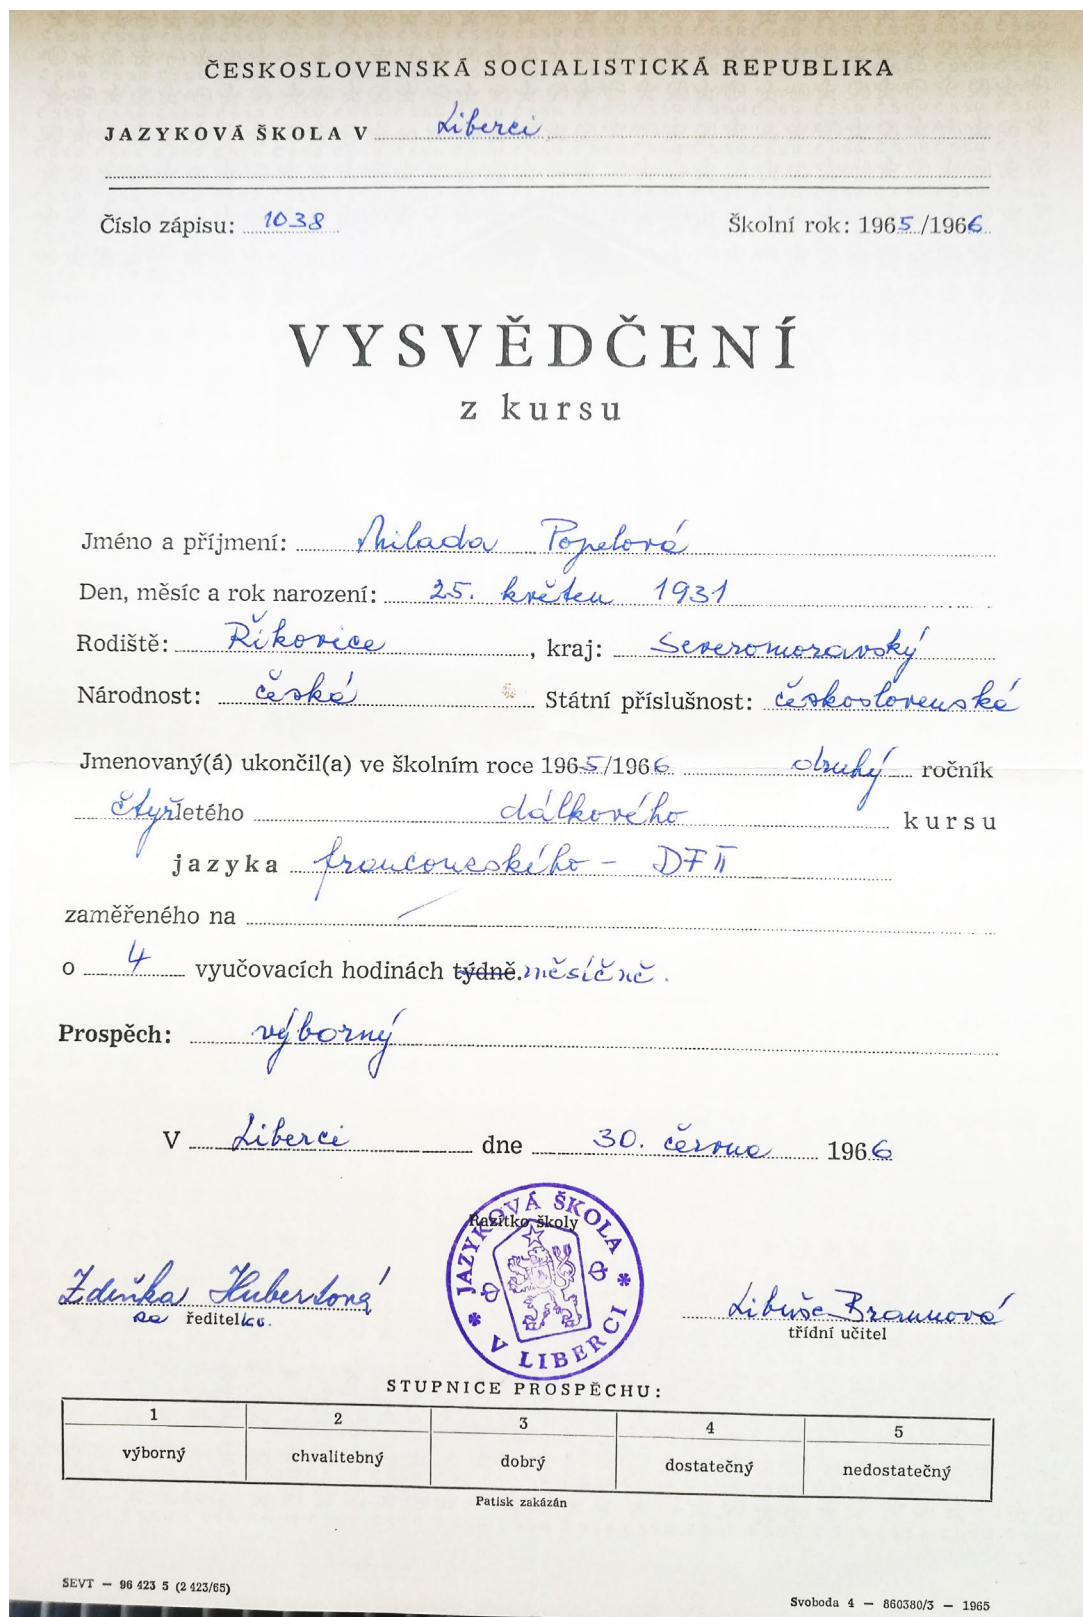 ČESKOSLOVENSKÁ SOCIALISTICKÁ REPUBLIKA
JAZYKOVÁ ŠKOLA V Liberci
Číslo zápisu: 1038 Školní rok: 1965/1966
VYSVĚDČENÍ
z kursu
Jméno a příjmení: Milada Popelová
Den, měsíc a rok narození: 25. květen 1931
Rodiště: Říkovice, kraj: Severomoravský
Národnost: česká Státní příslušnost: československá
Jmenovaný(á) ukončil(a) ve školním roce 1965/1966 druhý ročník
čtyřletého dálkového kursu
jazyka francouzského - DF II
zaměřeného na
o 4 vyučovacích hodinách týdně. měsíčně.
Prospěch: výborný
V Liberci dne 30. června 1966
JAZYKOVÁ ŠKOLA V LIBERCI
Razítko školy
Zdeňka Hubertová Libuše Braunová
za ředitelku. třídní učitel
STUPNICE PROSPĚCHU:
1 2 3 4 5
výborný chvalitebný dobrý dostatečný nedostatečný
Patisk zakázán
SEVT — 96 423 5 (2 423/65)
Svoboda 4 — 860380/3 — 1965